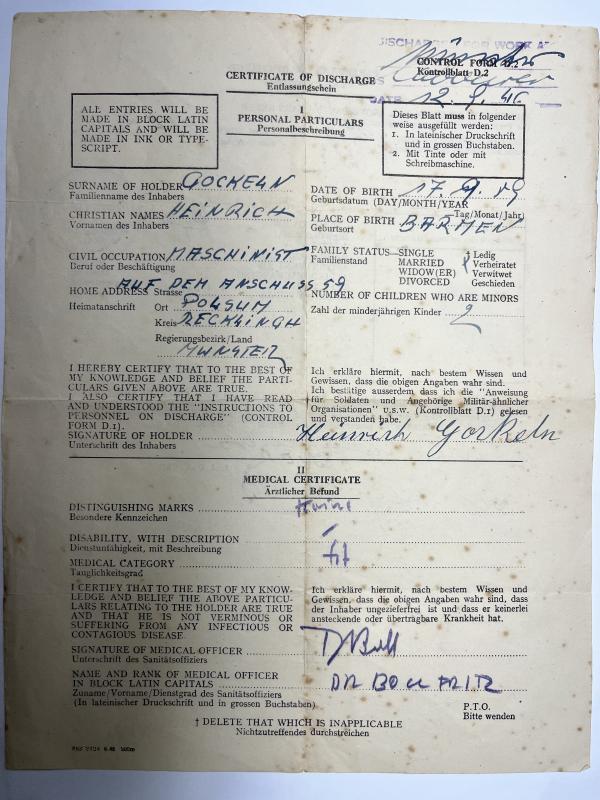 DISCHARGED FOR WORK A
CONTROL FORM D.2
Kontrollblatt D.2
CERTIFICATE OF DISCHARGE
Entlassungschein
DATE 12.9.46
I
PERSONAL PARTICULARS
Personalbeschreibung
ALL ENTRIES WILL BE
MADE IN BLOCK LATIN
CAPITALS AND WILL BE
MADE IN INK OR TYPE-
SCRIPT.
Dieses Blatt muss in folgender
weise ausgefüllt werden:
1. In lateinischer Druckschrift
und in grossen Buchstaben.
2. Mit Tinte oder mit
Schreibmaschine.
SURNAME OF HOLDER GOCKELN
Familienname des Inhabers
CHRISTIAN NAMES HEINRICH
Vornamen des Inhabers
CIVIL OCCUPATION MASCHINIST
Beruf oder Beschäftigung
HOME ADDRESS Strasse AUF DEM ANSCHUSS 59
Heimatanschrift Ort POLSUM
Kreis RECKLINGH
Regierungsbezirk/Land
MUNSTER
DATE OF BIRTH 17.9.09
Geburtsdatum (DAY/MONTH/YEAR
Tag/Monat/Jahr)
PLACE OF BIRTH BARMEN
Geburtsort
FAMILY STATUS—SINGLE † Ledig
Familienstand MARRIED Verheiratet
WIDOW(ER) Verwitwet
DIVORCED Geschieden
NUMBER OF CHILDREN WHO ARE MINORS
Zahl der minderjährigen Kinder 2
I HEREBY CERTIFY THAT TO THE BEST OF
MY KNOWLEDGE AND BELIEF THE PARTI-
CULARS GIVEN ABOVE ARE TRUE.
I ALSO CERTIFY THAT I HAVE READ
AND UNDERSTOOD THE "INSTRUCTIONS TO
PERSONNEL ON DISCHARGE" (CONTROL
FORM D.1).
SIGNATURE OF HOLDER Heinrich Gockeln
Unterschrift des Inhabers
Ich erkläre hiermit, nach bestem Wissen und
Gewissen, dass die obigen Angaben wahr sind.
Ich bestätige ausserdem dass ich die "Anweisung
für Soldaten und Angehörige Militär-ähnlicher
Organisationen" u.s.w. (Kontrollblatt D.1) gelesen
und verstanden habe.
II
MEDICAL CERTIFICATE
Ärztlicher Befund
DISTINGUISHING MARKS Keine
Besondere Kennzeichen
DISABILITY, WITH DESCRIPTION –
Dienstunfähigkeit, mit Beschreibung
MEDICAL CATEGORY fit
Tauglichkeitsgrad
I CERTIFY THAT TO THE BEST OF MY KNOW-
LEDGE AND BELIEF THE ABOVE PARTICU-
LARS RELATING TO THE HOLDER ARE TRUE
AND THAT HE IS NOT VERMINOUS OR
SUFFERING FROM ANY INFECTIOUS OR
CONTAGIOUS DISEASE.
Ich erkläre hiermit, nach bestem Wissen und
Gewissen, dass die obigen Angaben wahr sind, dass
der Inhaber ungezieferfrei ist und dass er keinerlei
ansteckende oder übertragbare Krankheit hat.
SIGNATURE OF MEDICAL OFFICER
Unterschrift des Sanitätsoffiziers
NAME AND RANK OF MEDICAL OFFICER
IN BLOCK LATIN CAPITALS DR FRITZ
Zuname/Vorname/Dienstgrad des Sanitätsoffiziers
(In lateinischer Druckschrift und in grossen Buchstaben)
P.T.O.
Bitte wenden
† DELETE THAT WHICH IS INAPPLICABLE
Nichtzutreffendes durchstreichen